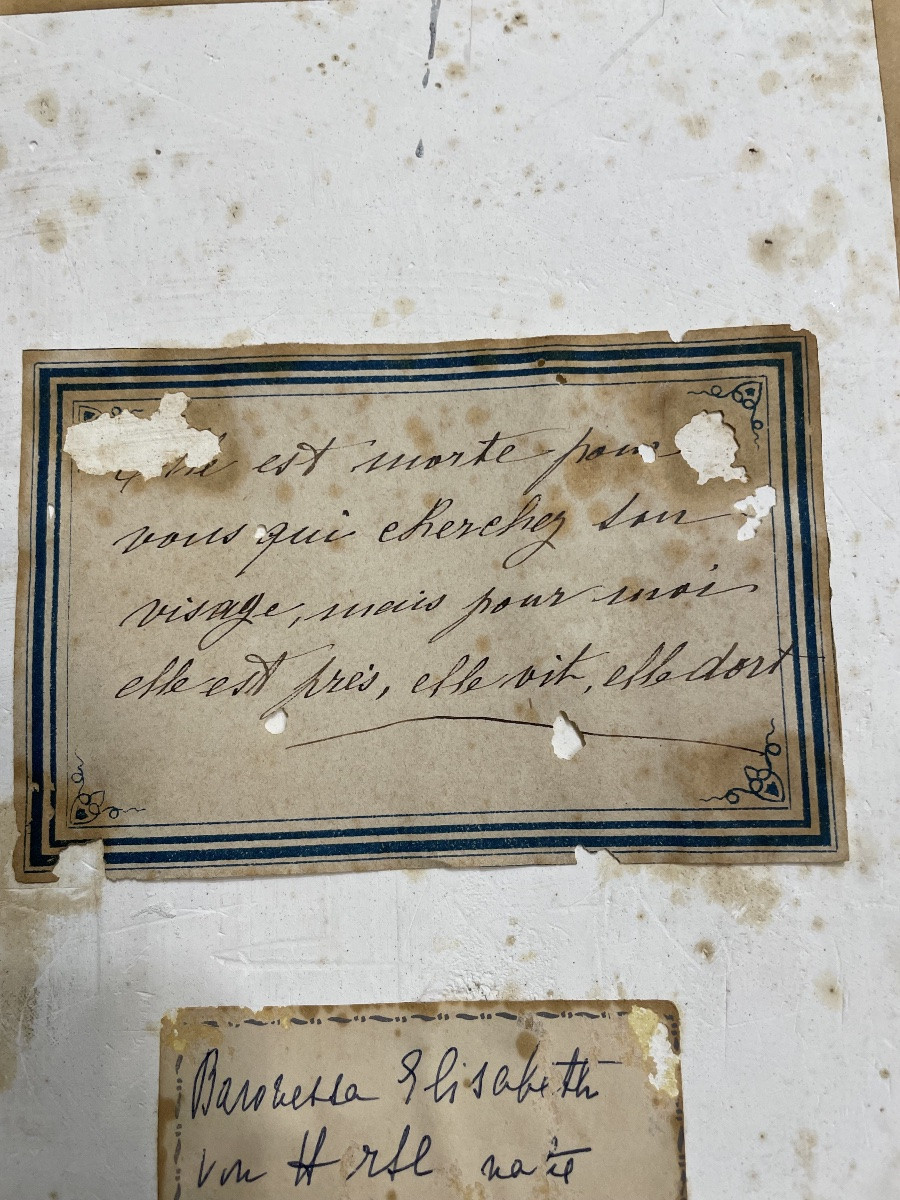 est morte pour
vous qui cherchez son
visage, mais pour moi
elle est près, elle vit, elle dort
Baronessa Elisabeth
von